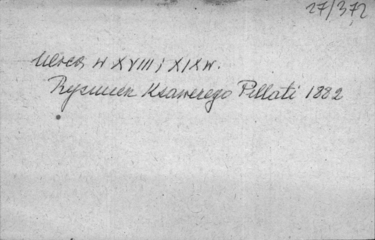 27/372
w XVIII i XIX w.
Rysunek Ksawerego Pillati 1882